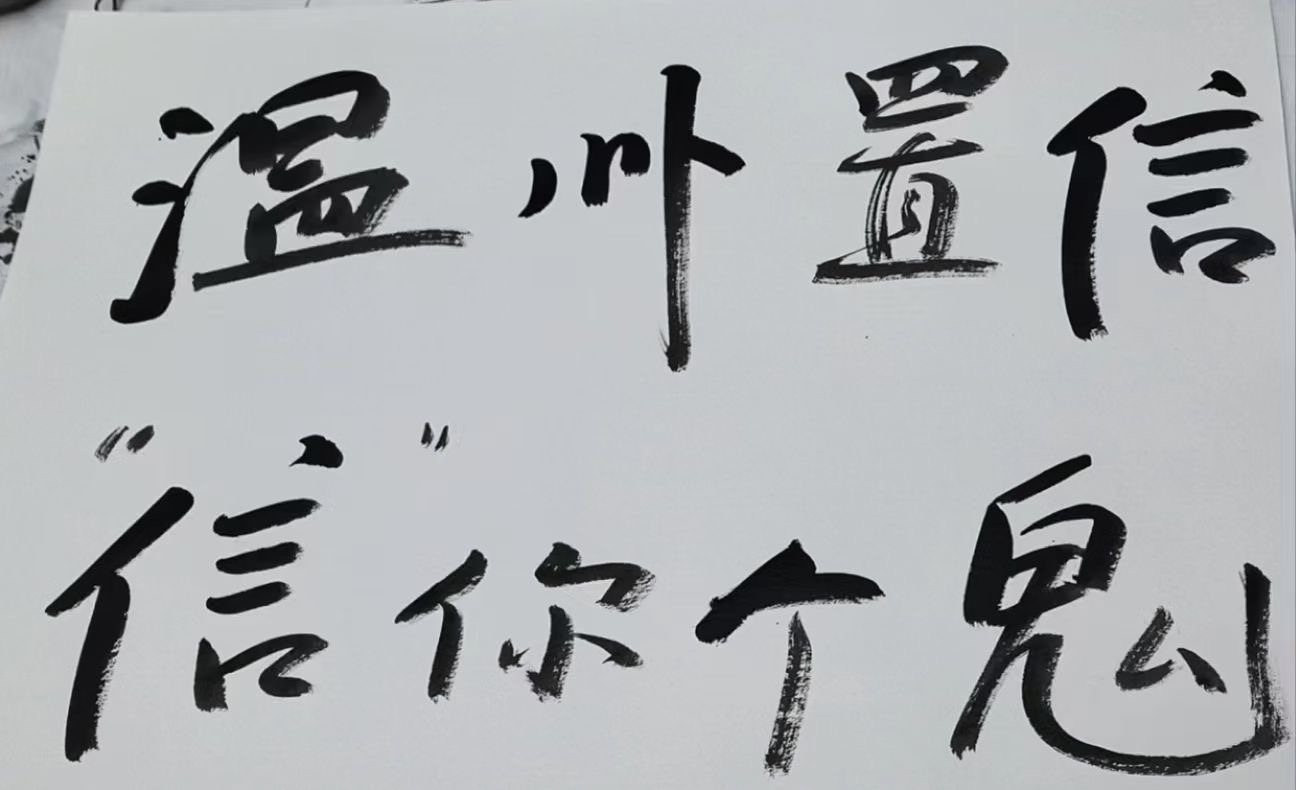 温州置信
“信”你个鬼